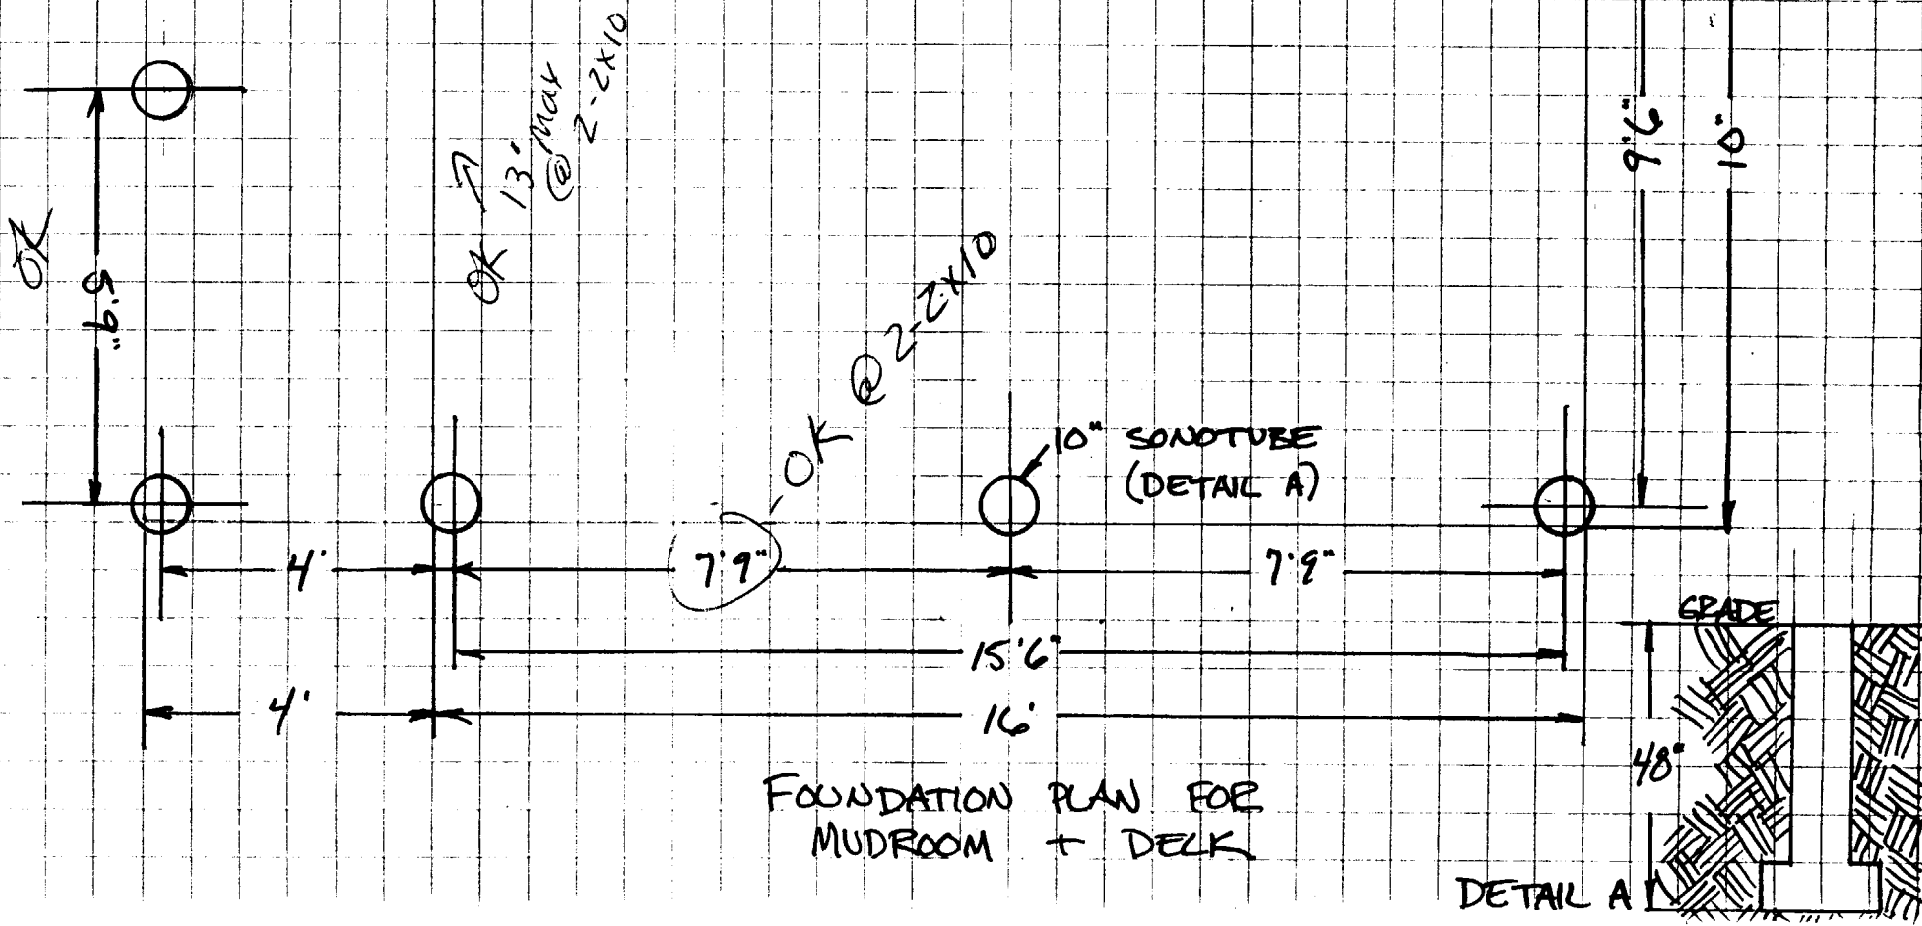 OK
5'9"
OK
13' Max
@ 2-2x10
OK @ 2-2x10
9'6"
10'
10" SONOTUBE
(DETAIL A)
4'
7'9"
7'9"
15'6"
4'
16'
GRADE
48"
DETAIL A
FOUNDATION PLAN FOR
MUDROOM + DECK